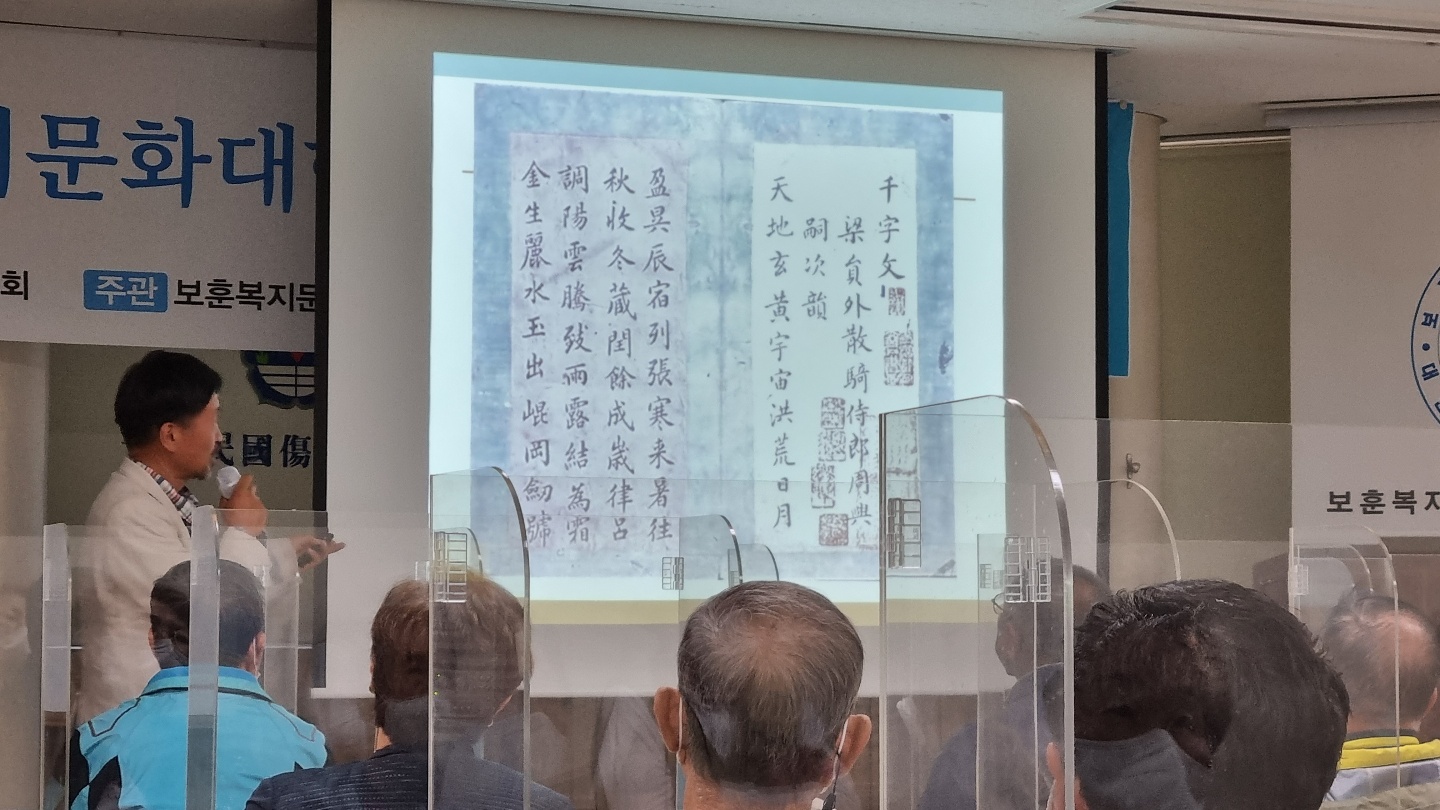 문화대
회
주관 보훈복지문
民國傷
千字文
梁貟外散騎侍郎周興
嗣次韻
天地玄黃宇宙洪荒日月
盈昃辰宿列張寒来暑往
秋收冬蔵閏餘成歲律呂
調陽雲騰致雨露結為霜
金生麗水玉出崐岡劒號
보훈복지